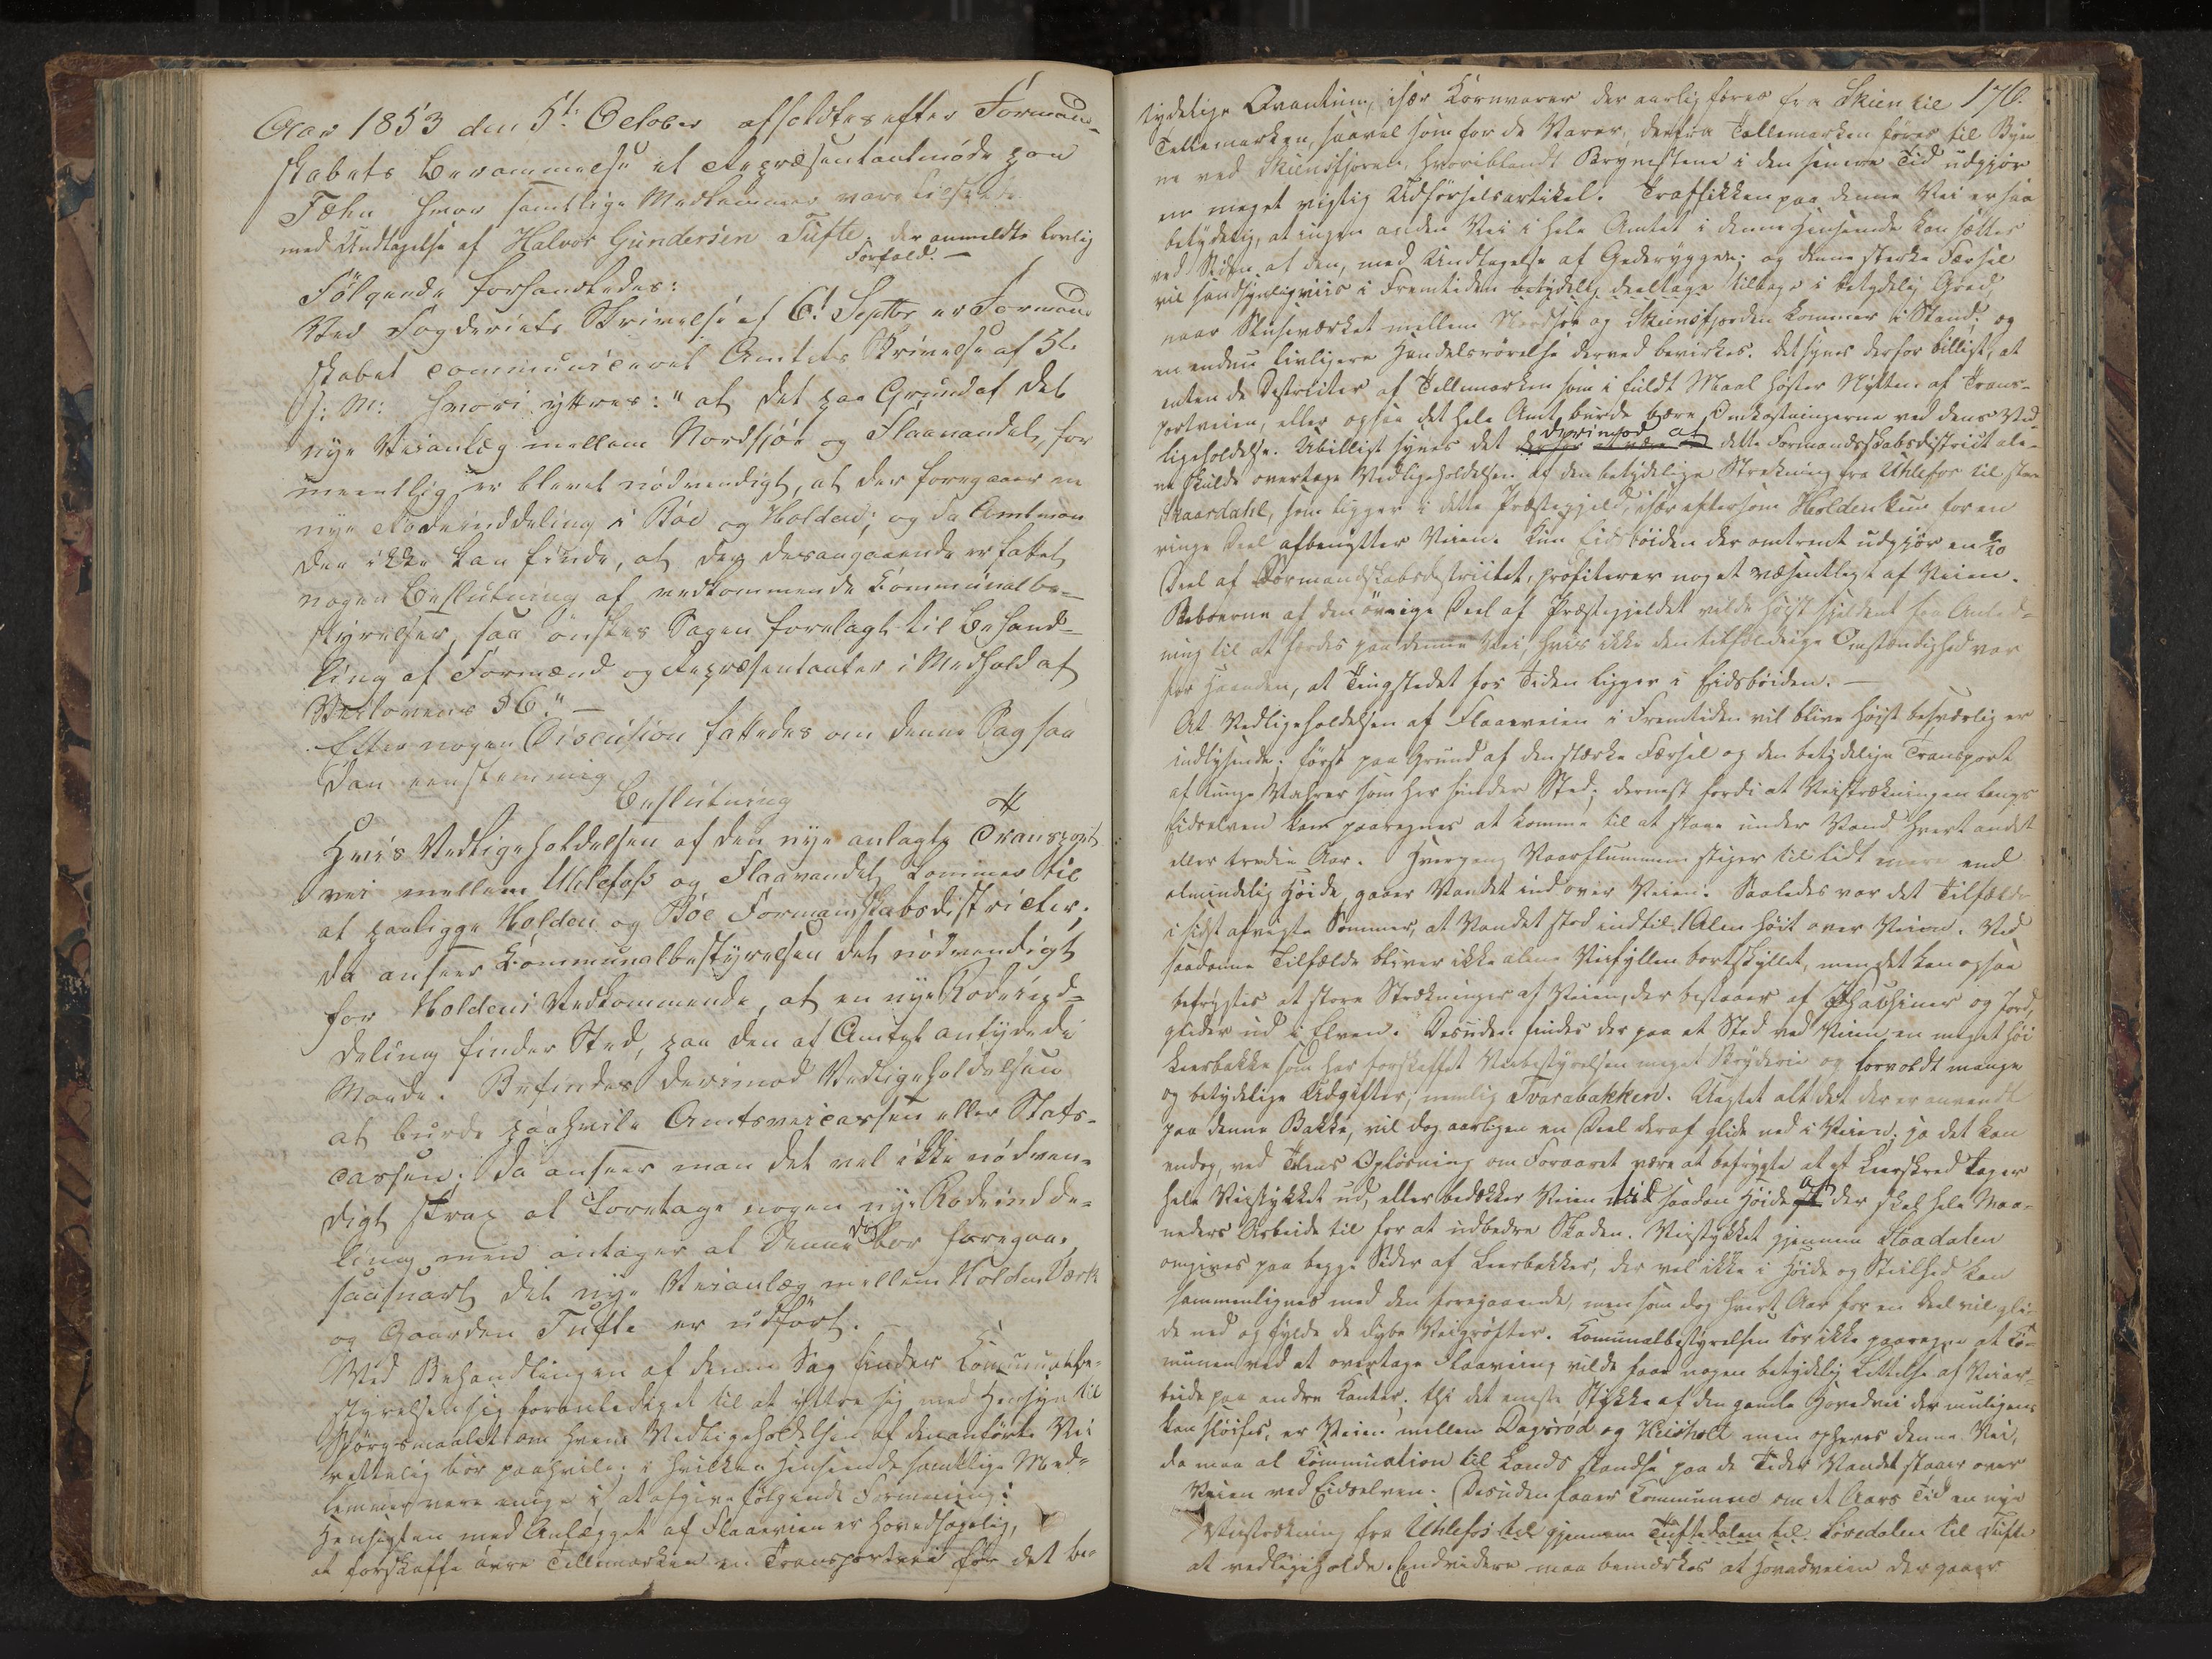 Aar 1853 den 5te October afholdtes efter Formand-
skabets Berammelse et Repræsentantmøde paa
Tæhn hvor samtlige Medlemmer vare tilstede
med Undtagelse af Halvor Gundersen Tufte, der anmeldte lovlig
Forfald. —
Følgende forhandledes:
Ved Fogderiets Skrivelse af 6t Septbr er Formand
skabet communiceret Amtets Skrivelse af 5te
s: M: hvori yttres: "at det paa Grund af det
nye Veianlæg mellem Nordsjøe og Flaavandet, for
meentlig er blevet nødvendigt, at der foregaaer en
nye Rodeinddeling i Bøe og Holden; og da Amtman
den ikke kan finde, at der desangaaende er fattet
nogen Beslutning af vedkommende Communalbe-
styrelser, saa ønskes Sagen forelagt til Behand-
ling af Formænd og Repræsentanter i Medhold af
Veilovens § 6." —
Efter nogen Discusion fattedes om denne Sag saa
dan eenstemmig
Beslutning
Hvis Vedligeholdelsen af den nye anlagte Transport
vei mellem Uhlefoss og Flaavandet kommer til
at paaligge Holden og Bøe Formandskabsdistricter,
da anseer Communalbestyrelsen det nødvendigt
for Holdens Vedkommende, at en nye Rodeind-
deling finder Sted, paa den af Amtet antydede
Maade. Befindes derimod Vedligeholdelsen
at burde paahvile Amtsveicassen eller Stats-
cassen; da anseer man det vel ikke nødven-
digt strax at foretage nogen nye Rodeindde-
ling men antager at denne dog bør foregaae,
saasnart det nye Veianlæg mellem Holden Værk
og Gaarden Tufte er udført. —
Ved Behandlingen af denne Sag finder Communalbe-
styrelsen sig foranlediget til at yttre sig med Hensyn til
Spørgsmaalet om hvem Vedligeholdelsen af den anførte Vei
rettelig bør paahvile; i hvilken Henseende samtlige Med-
lemmer vare enige i, at afgive følgende Formening:
Hensigten med Anlægget af Flaaveien er hovedsagelig,
at forskaffe øvre Tellemarken en Transportvei for det be-
176.
tydelige Qvantum, især Kornvarer der aarlig føres fra Skien til
Tellemarken, saavel som for de Varer, der fra Tellemarken føres til Byer
ne ved Skiensfjorden, hvoriblandt Brynestene i den senere Tid udgjør
en meget vigtig Udførselsartikel. Traffikken paa denne Vei er saa
betydelig, at ingen anden Vei i hele Amtet i denne Henseende kan sættes
ved Siden af den, med Undtagelse af Gederyggen; og denne stærke Færsel
vil sandsynligviis i Fremtiden betydelig deeltage tiltage i betydelig Grad,
naar Sluseværket mellem Nordsjø og Skiensfjorden kommer i Stand; og
en endnu livligere Handelsrørelse derved bevirkes. Det synes derfor billigt, at
enten de Districter af Tellemarken som i fuldt Maal høster Nytten af Trans-
portveien, eller ogsaa det hele Amt burde bære Omkostningerne ved dens Ved-
ligeholdelse. Ubilligt synes det derimod at dette Formandsskabsdistrict ale-
ne skulde overtage Vedligeholdelsen af den betydelige Strækning fra Uhlefos til store
Kaardahl, som ligger i dette Præstegjeld, især eftersom Holden kun for en
ringe Deel afbenytter Veien. Kun Eidsbøiden der omtrent udgjør en 1/10
Deel af Formandskabsdistriktet, profiterer noget væsentligt af Veien.
Beboerne af den øvrige Deel af Præstegjeldet vilde høist sjeldent faa Anled-
ning til at færdes paa denne Vei, hvis ikke den tilfældige Omstændighed var
for Haanden, at Tingstedet for Tiden ligger i Eidsbøiden. —
At Vedligeholdelsen af Flaaveien i Fremtiden vil blive høist besværlig er
indlysende; først paa Grund af den stærke Færsel og den betydelige Transport
af tunge Vahrer som her finder Sted; dernest fordi at Veistrækningen langs
Eidselven kan paaregnes at komme til at staae under Vand hvert andet
eller tredie Aar. Hvergang Vaarflommen stiger til lidt mere end
almindelig Høide, gaaer Vandet ind over Veien. Saaledes var det Tilfælde
i sidst afvigte Sommer, at Vandet stod indtil 1 Alen høit over Veien. Ved
saadanne Tilfælde bliver ikke alene Veifylden bortskyllet, men det kan ogsaa
befrygtes at store Strækninger af Veien, der bestaaer af Phaskiner og Jord,
glider ud i Elven. Desuden findes der paa et Sted ved Veien en meget høi
Leerbakke som har forskaffet Veibestyrelsen meget Bryderie og forvoldt mange
og betydelige Udgifter, nemlig Tvarabakken. Uagtet alt det der er anvendt
paa denne Bakke, vil dog aarligen en Deel deraf glide ned i Veien; ja det kan
endog, ved Telens Opløsning om Foraaret være at befrygte at et Leerskred tager
hele Veistykket ud, eller bedækker Veien til saadan Høide at der skal hele Maa-
neders Arbeide til for at udbedre Skaden. Veistykket gjennem Staadalen
omgives paa begge Sider af Leerbakker, der vel ikke i Høide og Steilhed kan
sammenlignes med den foregaaende, men som dog hvert Aar for en Deel vil gli-
de ned og fylde de dybe Veigrøfter. Communalbestyrelsen tør ikke paaregne at Co-
munen ved at overtage Flaaveien, vilde faae nogen betydelig Lettelse af Veiar-
beide paa andre Kanter; thi det eneste Stykke af den gamle Hovedvei der muligens
kan sløifes, er Veien mellem Dagsrød og Heisholt men ophæves denne Vei,
da maa al Communication til Lands standse paa de Tider Vandet staaer over
Veien ved Eidselven. Desuden faaer Communen om et Aars Tid en nye
Veistrækning fra Uhlefos til gjennem Tuftedalen til Lövedalen til Tufte
at vedligeholde. Endvidere maa bemærkes at Hovedveien der gaaer